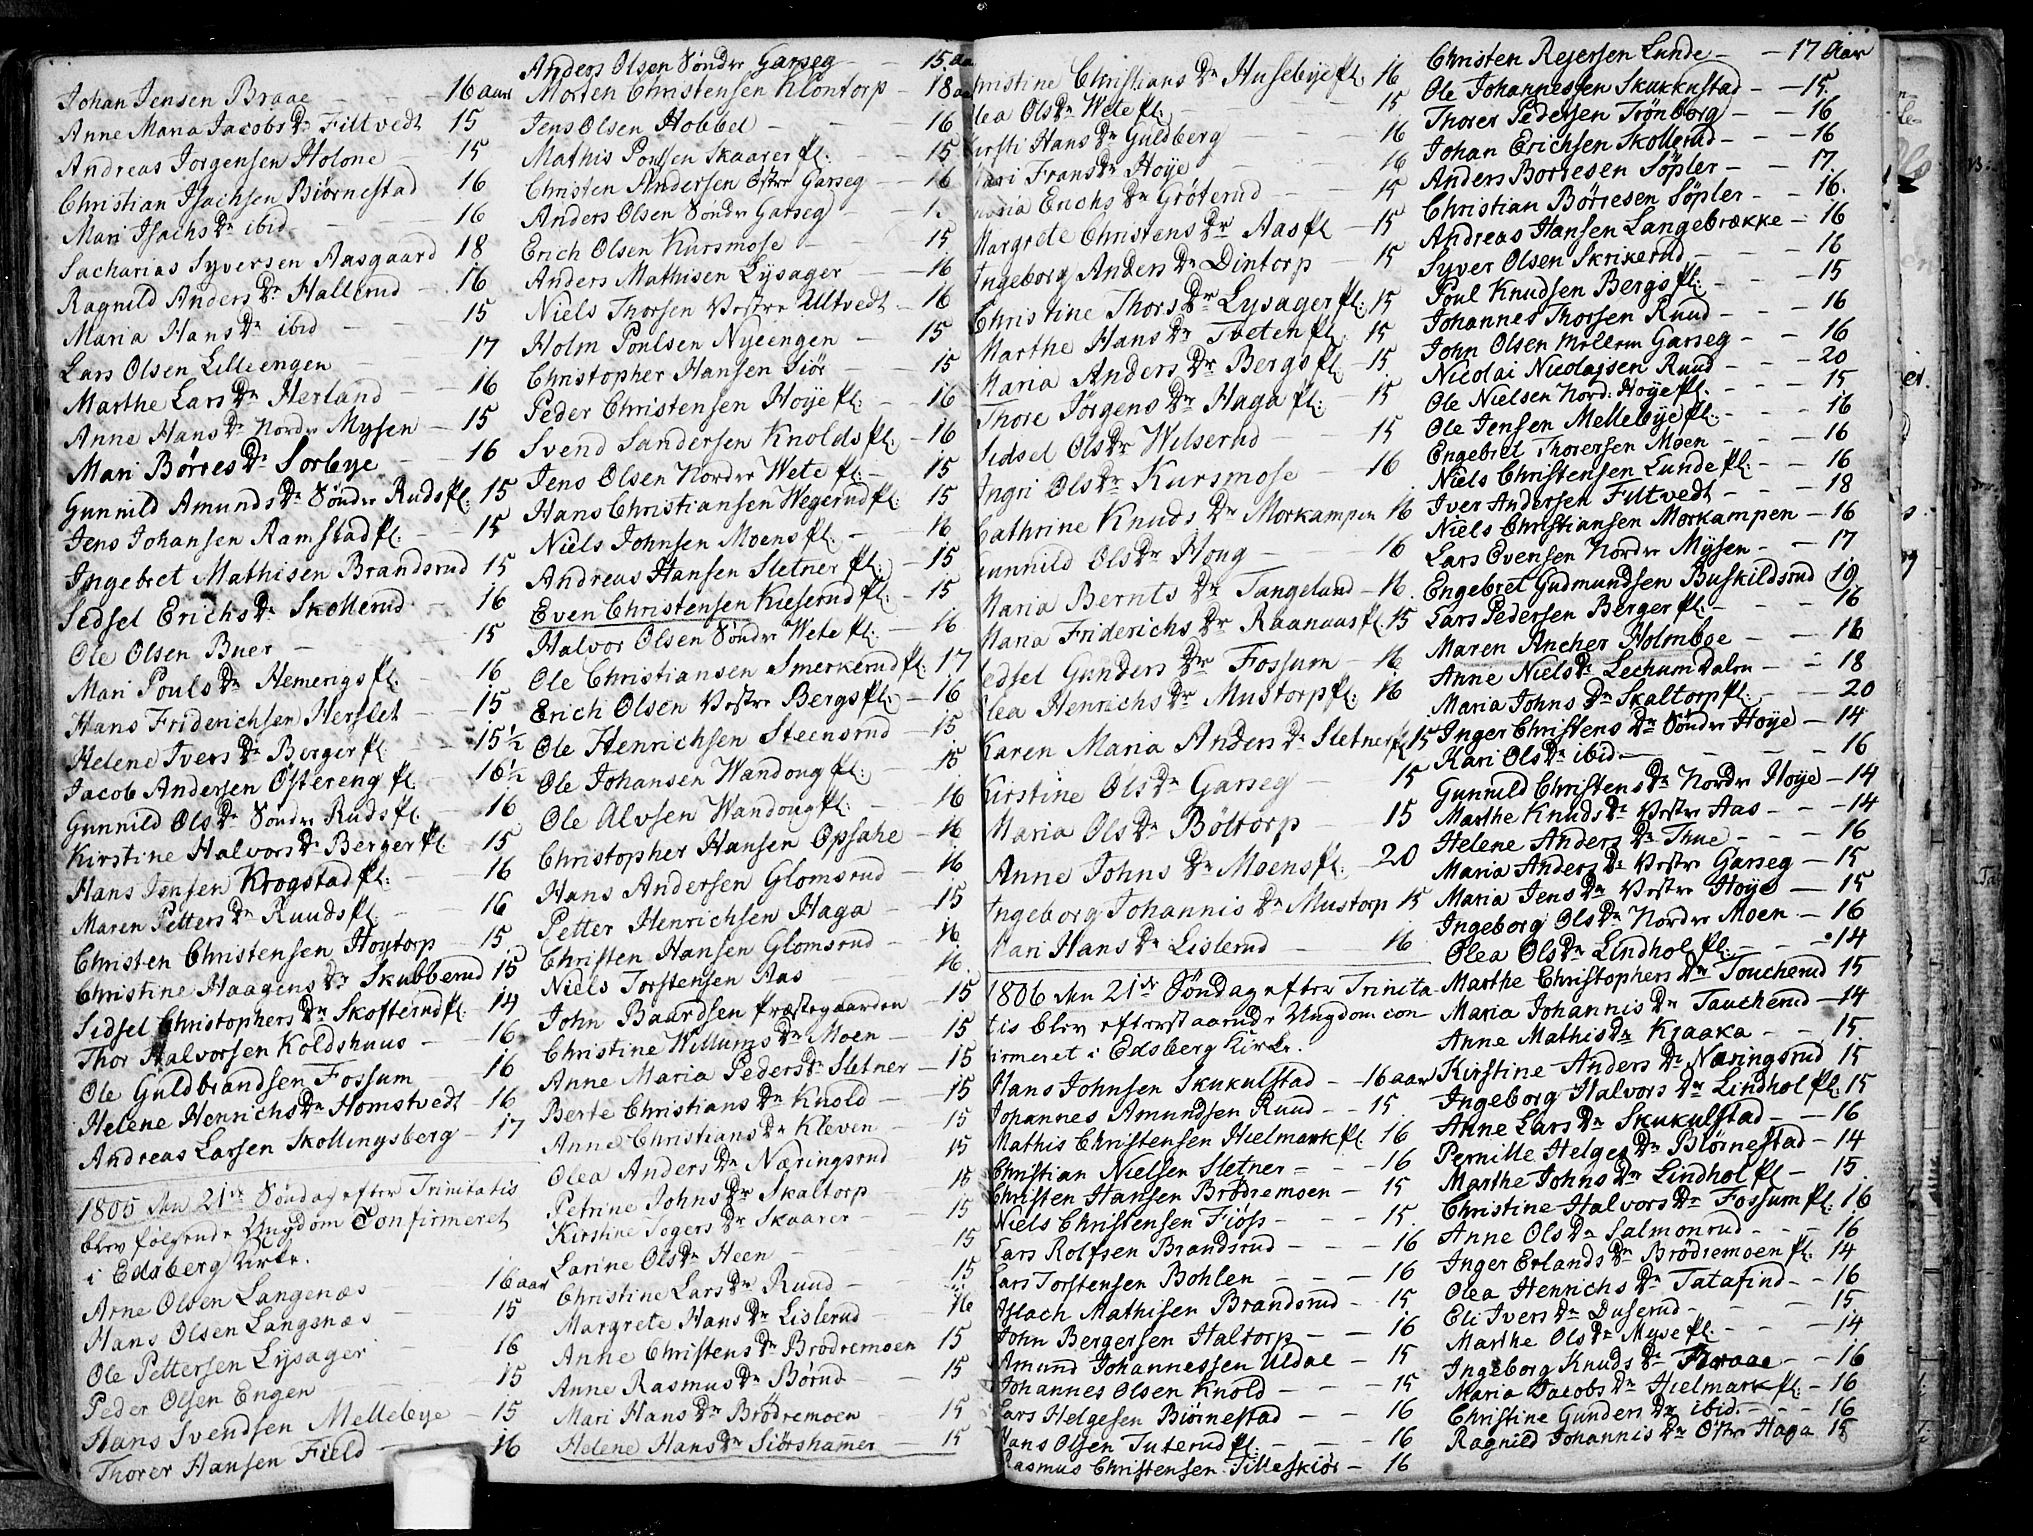 Johan Jensen Braae - - 16 aar
Anne Maria Jacobs Dr Filtvedt 15
Andreas Jorgensen Holone - 15
Christian Isachsen Biørnestad 16
Mari Isachs Dr ibid - 16
Sacharias Syversen Aasgaard 18
Ragnild Anders Dr Hallerud - 16
Maria Hans Dr ibid - - 15
Lars Olsen Lilleengen - - 17
Marthe Lars Dr Herland - 16
Anne Hans Dr Nordre Mysen - 15
Mari Børres Dr Sorbye - - 16
Gunnild Amunds Dr Søndre Ruds pl. 15
Jens Johansen Ramstad pl. - 15
Ingebret Mathisen Brandsrud 15
Sedsel Erichs Dr Skollerud - 16
Ole Olsen Buer - - 15
Mari Pouls Dr Hemerigs pl. - 16
Hans Friderichsen Herslet - 15
Helene Ivers Dr Berger pl. - 15½
Jacob Andersen Østereng pl. - 16½
Gunnild Ols Dr Søndre Ruds pl. - 16
Kirstine Halvors Dr Berger pl. 15
Hans Jensen Krogstad pl. - 16
Maren Petters Dr Ruuds pl. - 16
Christen Christensen Hoytorp - 15
Christine Haagens Dr Skubberud 15
Sidsel Christophers Dr Skofterud pl. 14
Thor Halvorsen Koldshuus - 16
Ole Guldbrandsen Fossum - 16
Helene Henrichs Dr Homstvedt - 16
Andreas Larsen Skollingsberg - 17
1805 den 21de Søndag efter Trinitatis
blev følgende Ungdom Confirmeret
i Edsberg Kirke.
Arne Olsen Langenæs - 16 aar
Hans Olsen Langsnæs - 15
Ole Pettersen Lysager - 16
Peder Olsen Engen - 15
Hans Svendsen Mellebye - 15
Thorer Hansen Field - 16
Anders Olsen Søndre Garseg - - 15. aa
Morten Christensen Klontorp - 18 aa
Jens Olsen Hobbel - - - 16
Mathis Poulsen Skaarer pl. - 15
Christen Andersen Østre Garseg - 16
Anders Olsen Søndre Garseg -
Erich Olsen Kursmose - - 15
Anders Mathisen Lysager - - 16
Niels Thorsen Vestre Ultvedt - 16
Holm Poulsen Nyeengen - 15
Christopher Hansen Siør - - 15
Peder Christensen Hoye pl. - 16
Svend Sandersen Knolds pl. - 16
Jens Olsen Nordre Wete pl. - 15
Hans Christiansen Wegerud pl. 15
Niels Johnsen Moens pl. - 16
Andreas Hansen Sletner pl. - 15
Even Christensen Kieserud pl. - 15
Halvor Olsen Søndre Wete pl. - 16
Ole Christiansen Smerkerud pl. 17
Erich Olsen Vestre Bergs pl. - 16
Ole Henrichsen Steensrud - 15
Ole Johansen Wandoug pl. - 15
Ole Alvsen Wandoug pl. - 16
Christopher Hansen Opsahe - 16
Hans Andersen Glomsrud - 16
Petter Henrichsen Haga - 15
Christen Hansen Glomsrud - 16
Niels Torstensen Aas - 16
John Baardsen Præstegaarden - 15
Christine Willums Dr Moen - 15
Anne Maria Peders Dr Sletner - 15
Berte Christians Dr Knold - 15
Anne Christians Dr Kleven - 15
Olea Anders Dr Næringsrud 15
Petrine Johns Dr Skaltorp 15
Kirstine Togers Dr Skaarer - 15
Larine Ols Dr Heen - 15
Christine Lars Dr Ruud - 15
Margrete Hans Dr Lislerud - 16
Anne Christens Dr Brødremoen 15
Anne Rasmus Dr Børud - 15
Mari Hans Dr Brødremoen - 15
Helene Hans Dr Siørshamer - 15
hristine Christians Dr Husebye pl. 16
lea Ols Dr Wete pl. - 15
irsti Hans Dr Guldberg - 16
ari Frans Dr Hoye - 16
Erichs Dr Grøterud - 15
Margrete Christens Dr Aas pl. - 15
Ingeborg Anders Dr Dintorp - 15
Christine Thors Dr Lysager pl. 15
Marthe Hans Dr Tveten pl. 15
Maria Anders Dr Bergs pl. - 15
Thore Jørgens Dr Haga pl. 15
Sidsel Ols Dr Welserud - 15
Ingri Ols Dr Kursmose - 16
Cathrine Knuds Dr Morkampen 16
unnild Ols Dr Houg - 16
Maria Bernts Dr Tangeland - 16
Maria Friderichs Dr Raanaas pl. 15
edsel Gunders Dr Fossum - 16
lea Henrichs Dr Mustorp pl. 16
Karen Maria Anders Dr Sletner pl. 15
Kirstine Ols Dr Garseg 15
Maria Ols Dr Boltorp 15
Anne Johns Dr Moens pl. - 20
Ingeborg Johannis Dr Mustorp 15
Mari Hans Dr Lislerud - 16
1806 den 21de Søndag efter Trinita
tis blev efterstaaende Ungdom con
firmeret i Edsberg Kirke.
Hans Johnsen Skukulstad - 16 aar
Johannes Amundsen Ruud - - 15.
Mathis Christensen Hielmark pl. 16
Christian Nielsen Sletner - - 16
Christen Hansen Brødremoen - 15
Niels Christensen Fioss - - - 15.
Lars Rolfsen Brandsrud - - 16
Lars Torstensen Bohlen - - 16
Aslach Mathisen Brandsrud - 15
John Bergersen Haltorp - - 16
Amund Johannessen Uldal - 15
Johannes Olsen Knold - - - 15
Lars Helgesen Biørnestad - - 16
Hans Olsen Tuterud pl. - - - 16
Rasmus Christensen Tilleskiør - 16
Christen Rejersen Lunde - - 17 Aar
Ole Johannessen Skukkustad - - 15.
Thorer Pedersen Trønborg - - 16
Johan Erichsen Skollerud - - 16
Anders Borresen Søpler - - 17.
Christian Børresen Søpler - - 16.
Andreas Hansen Langebrække - 16
Syver Olsen Skrikerud - - 16
Poul Knudsen Bergs pl. - - 15
Johannes Thorsen Ruud - - - 16
John Olsen Mellem Garseg - - 16
Nicolai Nicolajsen Ruud - - - 20
Ole Nielsen Nord. Hoye pl. - - - 15
Ole Jensen Mellebye pl. - - - 16
Engebret Thorersen Moen - - - 16
Niels Christensen Lunde pl. - - 16
Iver Andersen Filtvedt - - - 18
Niels Christiansen Morkampen - 16
Lars Evensen Nordre Mysen - - 17
Engebret Gudmundsen Buskildsrud (19
Lars Pedersen Berger pl. - - - 16
Maren Ancher Holmboe - - 18
Anne Niels Dr Lechum Dalen - - 18
Maria Johns Dr Skaltorp pl. - - 20
Inger Christens Dr Søndre Hoye - 14
Kari Ols Dr ibid - - - 16
Gunnild Christens Dr Nordre Hoye - 14
Marthe Knuds Dr Vestre Aas - - - 14
Helene Anders Dr Thue - - - 16
Maria Anders Dr Vestre Garseg - 15
Maria Jens Dr Vestre Hoye - 15
Ingeborg Ols Dr Nordre Moen - - 16
Olea Ols Dr Lindhol pl. - - - 14
Marthe Christophers Dr Toucherud 15
Maria Johannis Dr Taucherud - 14
Anne Mathis Dr Kraaka - - 15
Kirstine Anders Dr Næringsrud 15
Ingeborg Halvors Dr Lindhol pl. 15
Anne Lars Dr Skukulstad - - 16
Pernille Helges Dr Biørnestad - 14
Marthe Johns Dr Lindhol pl. - 15.
Christine Halvors Dr Fossum pl. 16
Anne Ols Dr Salmonrud - - - 16
Inger Erlands Dr Brødremoen pl. 14
Olea Henrichs Dr Tatafind - - 16
Eli Ivers Dr Duserud - - - 15.
Marthe Ols Dr Myse pl. - - - 14
Ingeborg Knuds Dr Braae - - 16
Maria Jacobs Dr Hielmark pl. - 16
Christine Gunders Dr ibid. - - - 16
Ragnild Johannis Dr Østre Haga 15